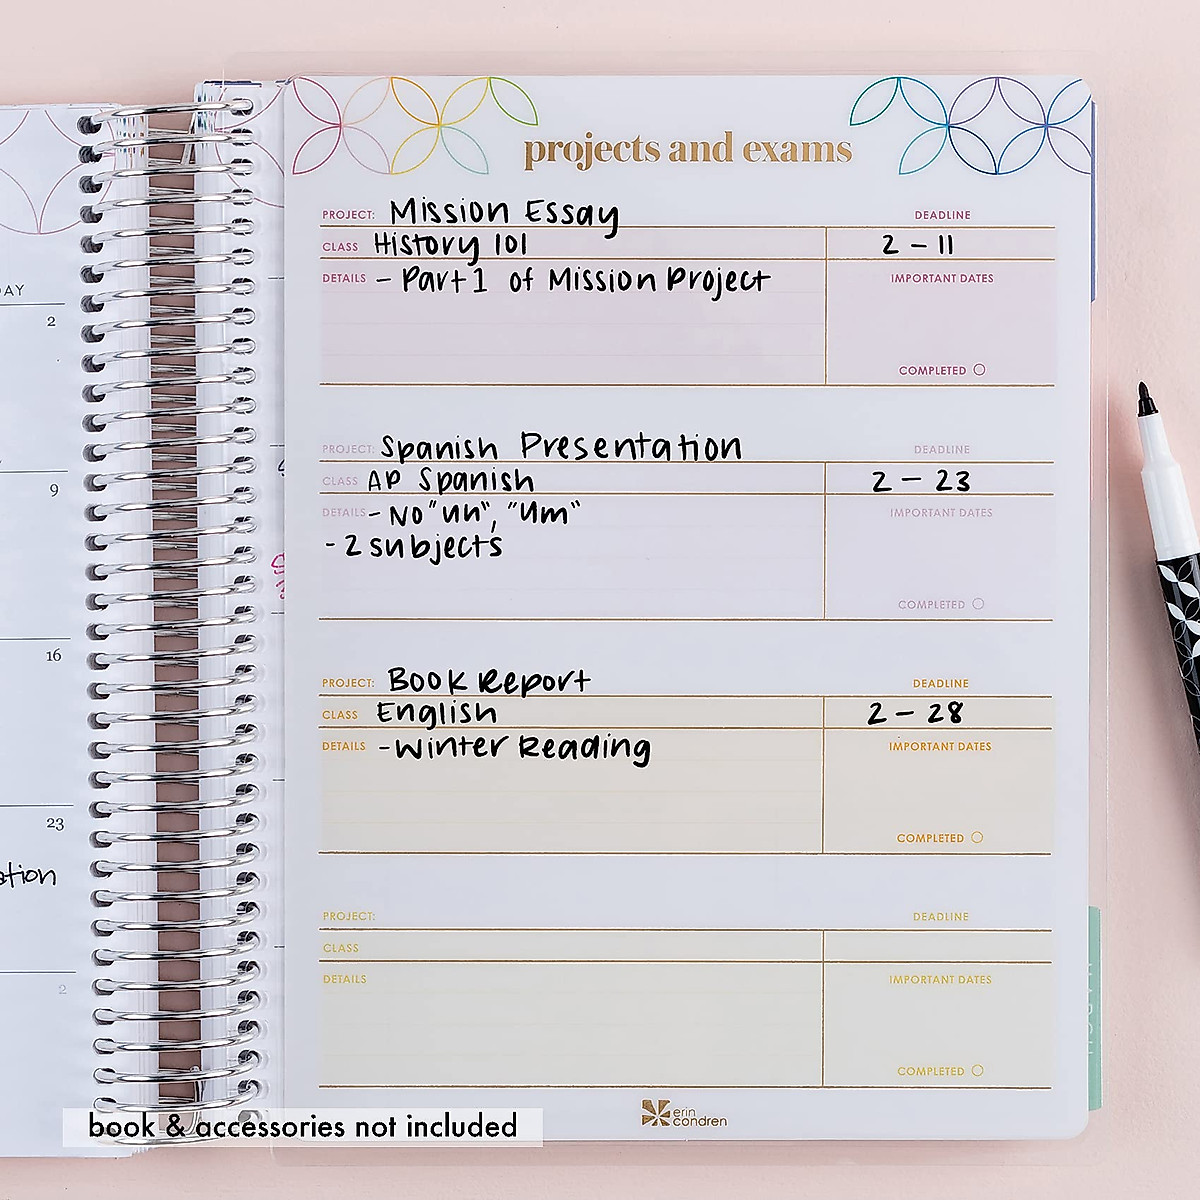 projects and exams
PROJECT: Mission Essay DEADLINE
CLASS History 101 2 - 11
DETAILS - Part 1 of Mission Project IMPORTANT DATES
COMPLETED
PROJECT: Spanish Presentation DEADLINE
CLASS AP Spanish 2 - 23
DETAILS - No "uh", "um" IMPORTANT DATES
- 2 subjects
COMPLETED
PROJECT: Book Report DEADLINE
CLASS English 2 - 28
DETAILS - Winter Reading IMPORTANT DATES
COMPLETED
PROJECT: DEADLINE
CLASS
DETAILS IMPORTANT DATES
COMPLETED
erin
condren
2
9
16
23
2
book & accessories not included